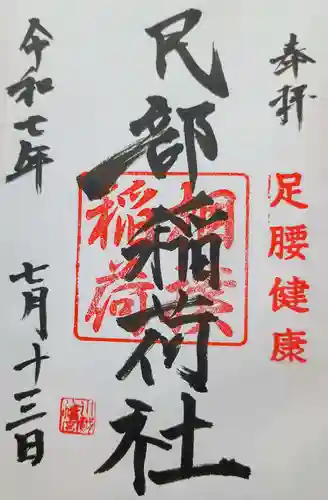 奉拝
足腰健康
民部稲荷社
相撲
稲荷
令和七年
七月十三日